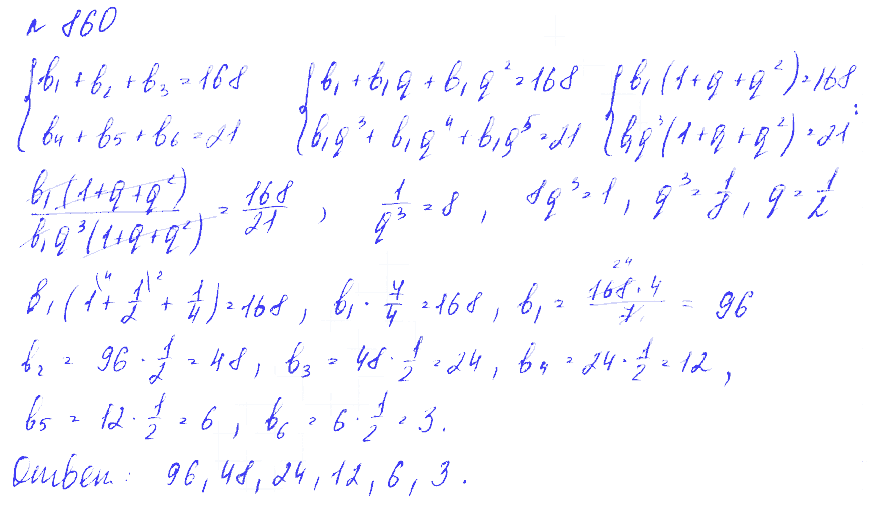 № 860
{b₁ + b₂ + b₃ = 168 {b₁ + b₁q + b₁q² = 168 {b₁(1+q+q²) = 168
{b₄ + b₅ + b₆ = 21 {b₁q³ + b₁q⁴ + b₁q⁵ = 21 {b₁q³(1+q+q²) = 21 :
b₁(1+q+q²)/b₁q³(1+q+q²) = 168/21 , 1/q³ = 8 , 8q³ = 1 , q³ = 1/8 , q = 1/2
b₁(1\⁴ + 1/2\² + 1/4) = 168 , b₁ · 7/4 = 168 , b₁ = 168²⁴ · 4/7 = 96
b₂ = 96 · 1/2 = 48 , b₃ = 48 · 1/2 = 24 , b₄ = 24 · 1/2 = 12 ,
b₅ = 12 · 1/2 = 6 , b₆ = 6 · 1/2 = 3 .
Ответ: 96, 48, 24, 12, 6, 3 .